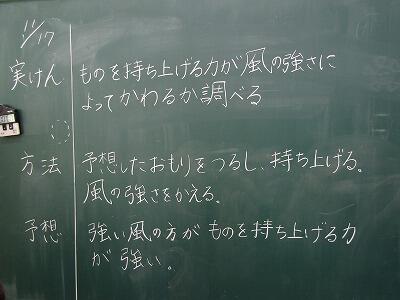 11/17
実けん ものを持ち上げる力が風の強さに
よってかわるか調べる
方法 予想したおもりをつるし、持ち上げる。
風の強さをかえる。
予想 強い風の方がものを持ち上げる力
が強い。